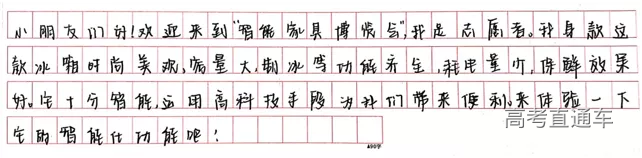 小朋友们好!欢迎来到"智能家具博览会",我是志愿者。我身款这
款冰箱时尚美观,容量大,制冰等功能齐全,耗电量少,保鲜效果
好。它十分智能,运用高科技手段为我们带来便利。来体验一下
它的智能化功能吧!
高考直通车